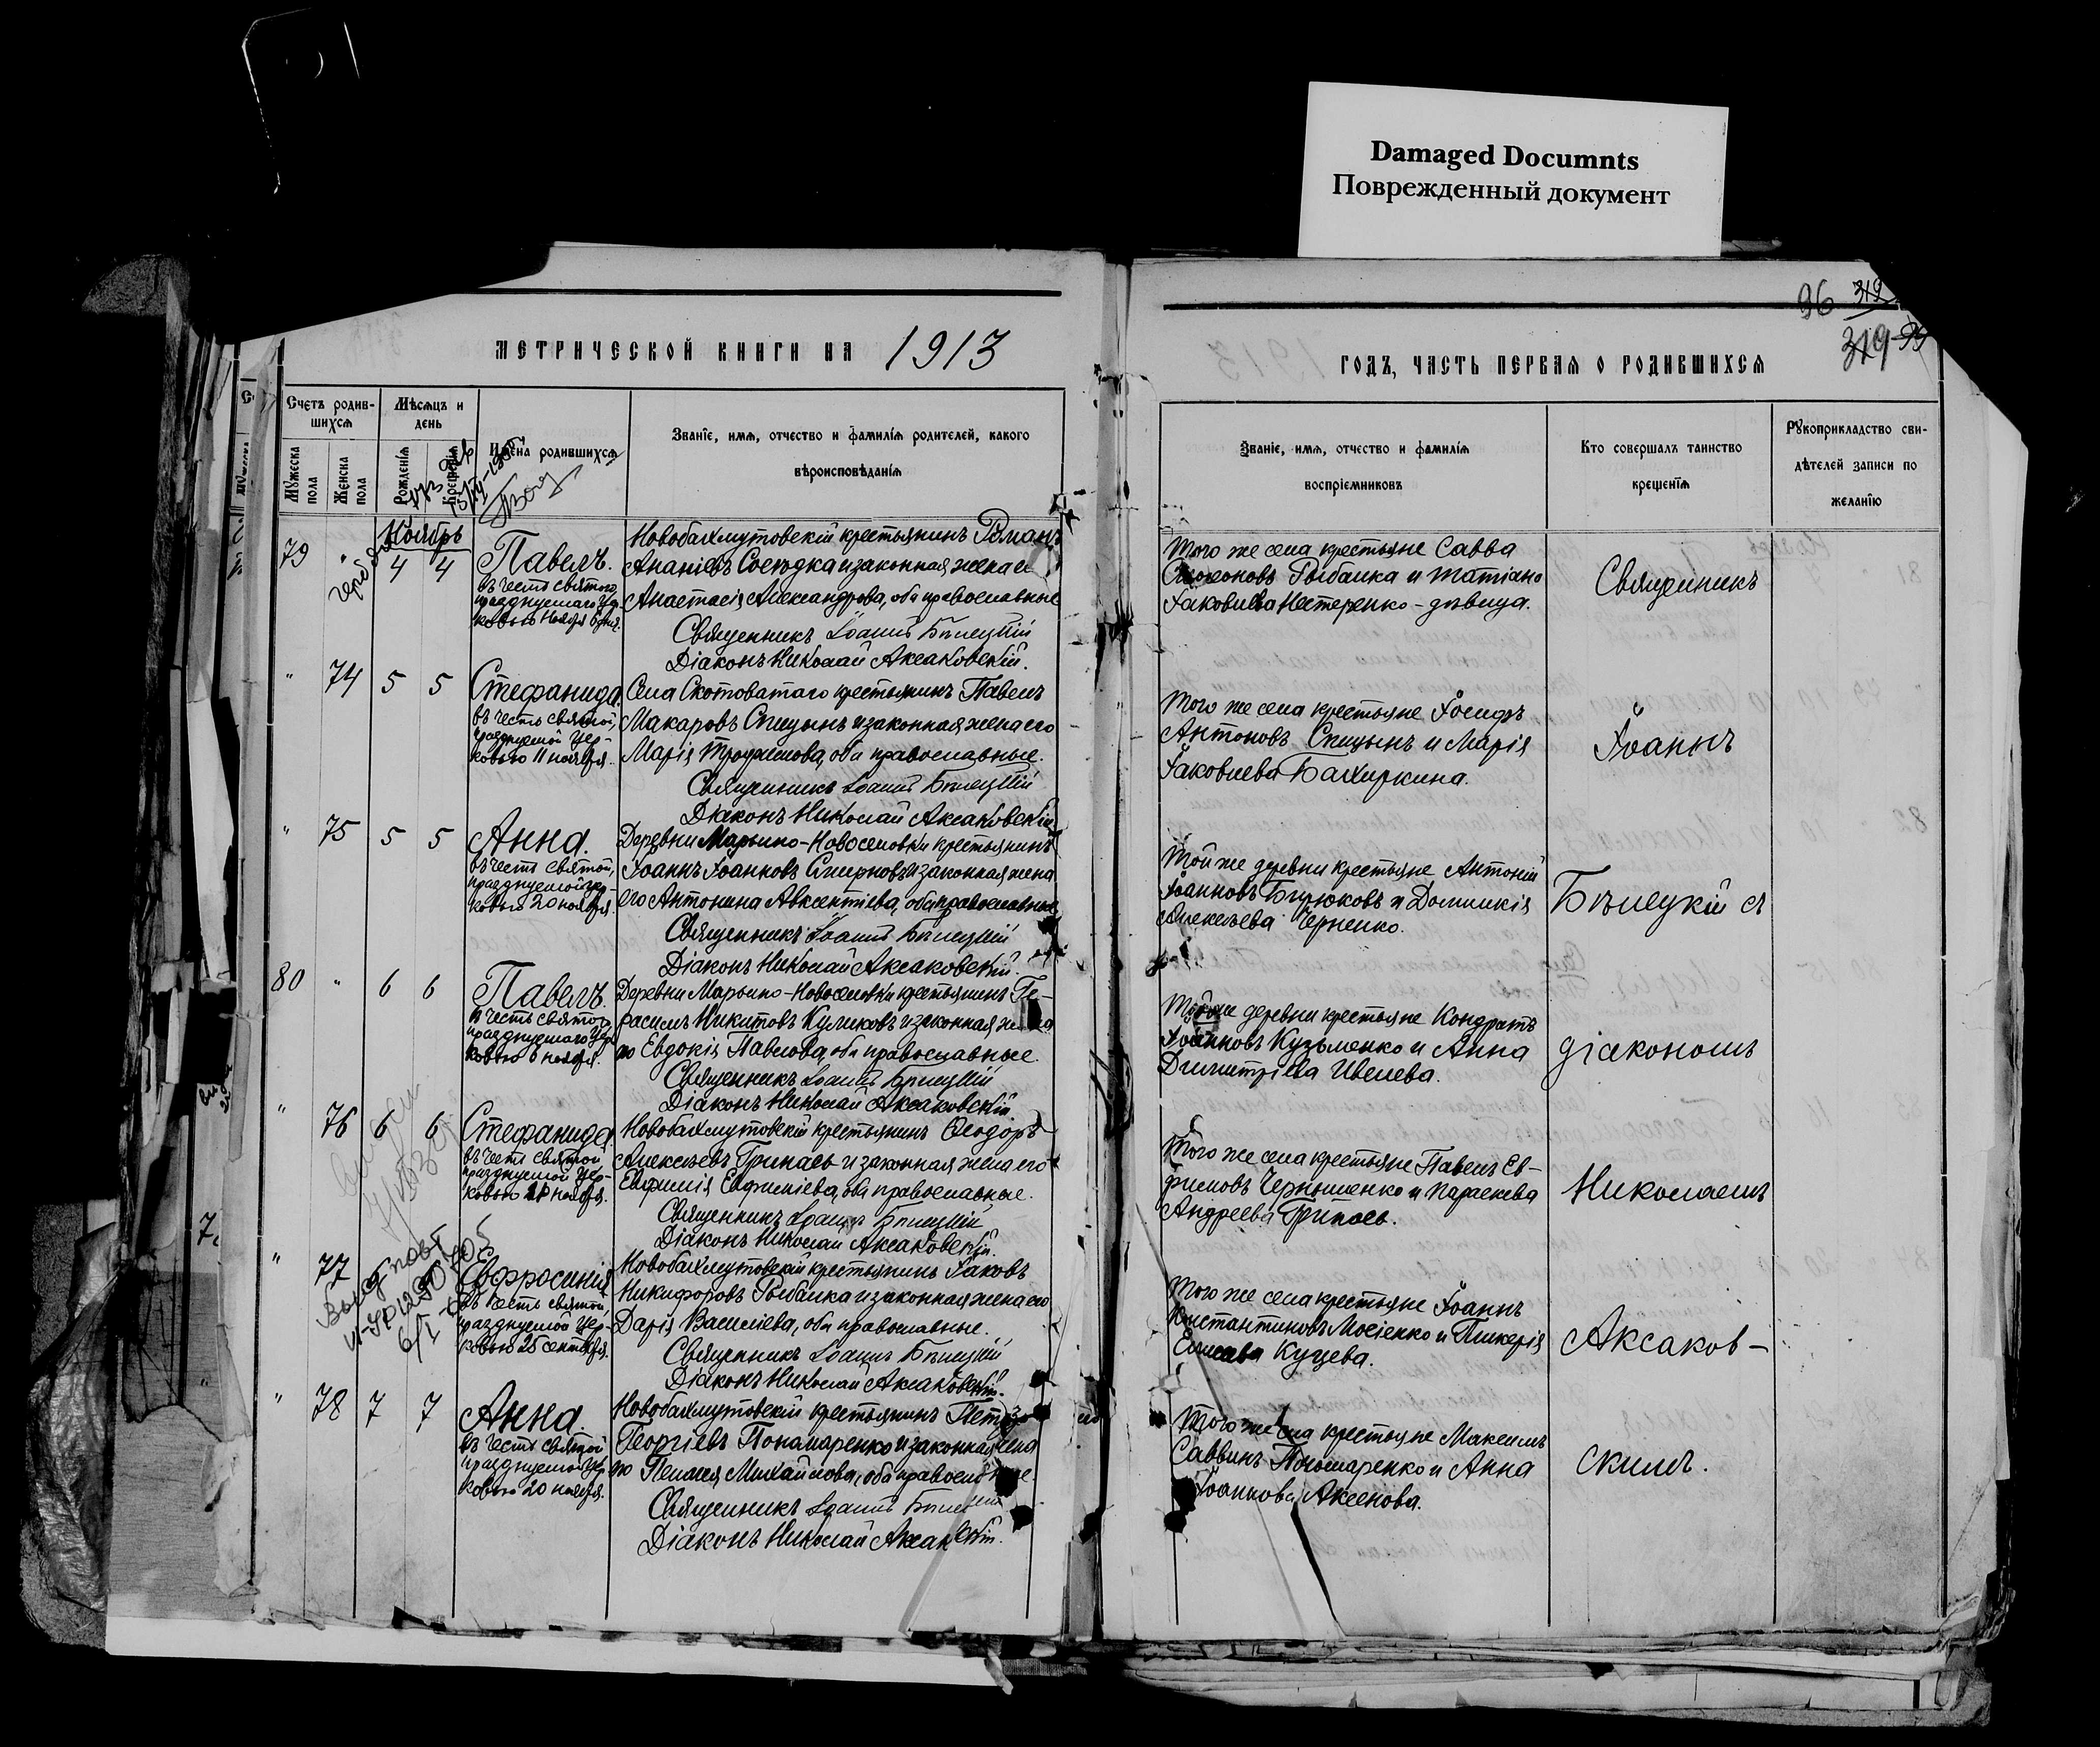 Damaged Documnts
Поврежденный документ
96 319
319 99
МЕТРИЧЕСКОЙ КНИГИ НА 1913
ГОДЪ, ЧАСТЬ ПЕРВАЯ О РОДИВШИХСЯ
Счетъ родив-
шихся
Мужеска пола
Женска пола
Мѣсяцъ и
день
Рожденія
Крещенія
Имена родившихся
Званіе, имя, отчество и фамилія родителей, какого
вѣроисповѣданія
Званіе, имя, отчество и фамилія
воспріемниковъ
Кто совершалъ таинство
крещенія
Рукоприкладство сви-
дѣтелей записи по
желанію
Ноябрь
79 " 4 4 Павелъ.
въ честь святого,
празднуемаго цер-
ковью ноября 6 дня.
Новобахмутовскій крестьянинъ Романъ
Ананіевъ и законная жена
Анастасія Александрова, оба православные
Священникъ Іоаннъ Бѣлецкій
Діаконъ Николай Аксаковскій.
Того же села крестьяне Савва
Рыбалка и Татіана
Іаковлева Нестеренко - дѣвица.
Священникъ
" 74 5 5 Стефанида.
въ честь святой,
празднуемой цер-
ковью 11 ноября.
Села Скотоватаго крестьянинъ Павелъ
Макаровъ Спицынъ и законная жена его
Марія Трофимова, оба православные.
Священникъ Іоаннъ Бѣлецкій
Діаконъ Николай Аксаковскій.
Того же села крестьяне Іосифъ
Антоновъ Спицынъ и Марія
Іаковлева Бахиркина.
Іоаннъ
" 75 5 5 Анна.
въ честь святой,
празднуемой цер-
ковью 20 ноября.
Деревни Марьино-Новоселовки крестьянинъ
Іоаннъ Іоанновъ Смирновъ и законная жена
его Антонина Авксентіева, оба православные
Священникъ Іоаннъ Бѣлецкій
Діаконъ Николай Аксаковскій.
Той же деревни крестьяне Антоній
Іоанновъ Бирюковъ и Домникія
Алексѣева Черненко.
Бѣлецкій съ
80 " 6 6 Павелъ.
въ честь святого,
празднуемаго цер-
ковью 6 ноября.
Деревни Марьино-Новоселовки крестьянинъ Ге-
расимъ Никитовъ Куликовъ и законная жена
его Евдокія Павлова, оба православные.
Священникъ Іоаннъ Бѣлецкій
Діаконъ Николай Аксаковскій.
Той же деревни крестьяне Кондратъ
Іоанновъ Кузьменко и Анна
Димитріева Ивлева.
діакономъ
" 76 6 6 Стефанида.
въ честь святой
празднуемой цер-
ковью 11 ноября.
Новобахмутовскій крестьянинъ Ѳеодоръ
Алексѣевъ Гринаев и законная жена его
Евфимія Евфиміева, оба православные.
Священникъ Іоаннъ Бѣлецкій
Діаконъ Николай Аксаковскій.
Того же села крестьяне Павелъ Ев-
фимовъ Чернышенко и Параскева
Андреева
Николаемъ
" 77 Евфросинія
въ честь святой,
празднуемой цер-
ковью 25 сентября.
Новобахмутовскій крестьянинъ Іаковъ
Никифоровъ Рыбалка и законная жена его
Дарія Василіева, оба православные.
Священникъ Іоаннъ Бѣлецкій
Діаконъ Николай Аксаковскій.
Того же села крестьяне Іоаннъ
Константиновъ Мосіенко и Гликерія
Куцева.
Аксаков-
" 78 7 7 Анна.
въ честь святой
празднуемой цер-
ковью 20 ноября.
Новобахмутовскій крестьянинъ Петръ
Георгіевъ Понамаренко и законная жена
его Пелагея Михайлова, оба православные.
Священникъ Іоаннъ Бѣлецкій
Діаконъ Николай Аксаковскій.
Того же села крестьяне Максимъ
Саввинъ Понамаренко и Анна
Іоаннова Аксенова.
скимъ.